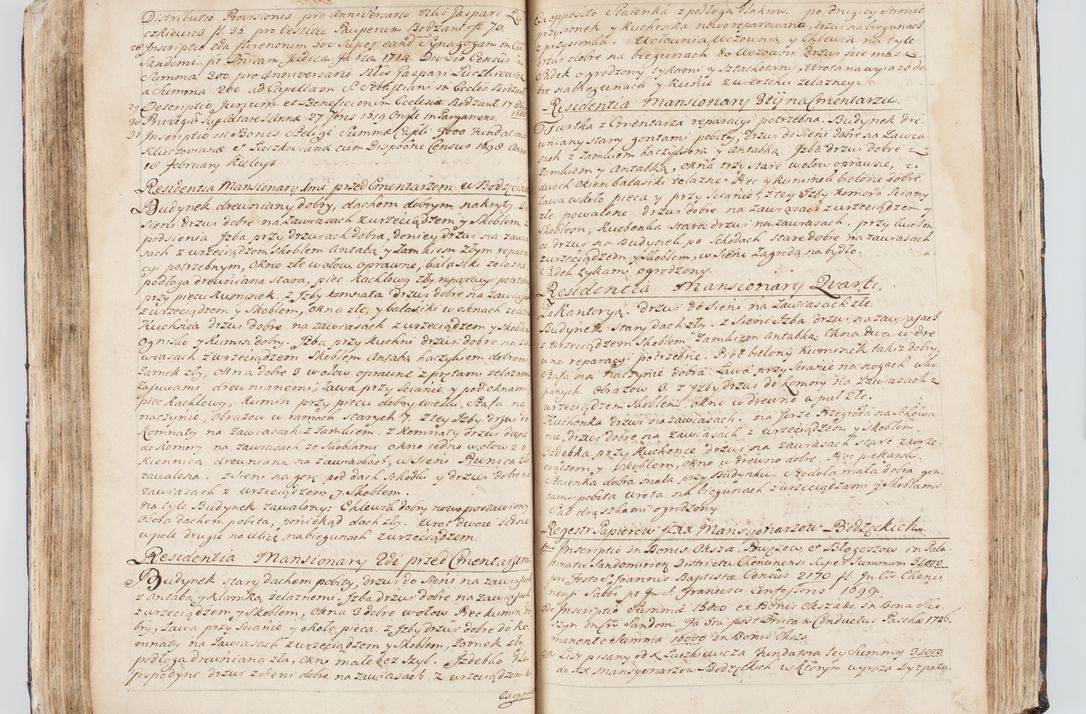 Distributio Provisiones pro Anniversario Illi Gaspari
czkiewicz fl. 35. pro Vestitu Pauperum Bodzant. fl. 70.
Inscriptio Sta florenorum 300 super eand Synagogam in
Sandomi. pt Dnicam Judica Ja Eta 1714. Divisio Census a
Summa 200 pro Anniversario Illis Gaspari Luczkiewicz
a Summa 260 ad Capellam S. Sebastiani in Ecclia Bodzant
29 Descriptio Jurium et Beneficiorum Ecclesia Bodzant.
30 Privilegia Sup Altare S Anna 27 Junis 1619
31 Inscriptio in Bonis Religi Summa Capli 3000 fundat
Kluchowiana et Luczkowiana cum Dispone Census 1698 Anno
18 february Kielcys
Residentia Mansionary Imi przed Cmentarzem w Bodzęcinie
Budynek drewniany dobry, dachem dobrym nakryty. z
Sieni drzwi dobre na Zawiasach z wrzeciądzem y Skoblem z
podsienia Izba przy drzwiach dobra, do niey drzwi na zawia
sach z wrzeciądzem Skoblem Antabą y Zamkiem złym repara
cy potrzebnym, Okno złe w ołow oprawne, balaski żelazne
podłoga drewniana stara, piec Kachlowy zły reparacy potrzeb
przy piecu Kuminek. z Izby komnata drzwi dobre na zawias
z wrzeciądzem y Skoblem, okna złe, y balaski w oknach żelaz
Kuchnia drzwi dobre na zawiasach z wrzeciądzem y Skoblem
Ognisko y Kumin dobry. Izba przy Kuchni drzwi dobre na za
wiasach z wrzeciądzem Skoblem Antabą haczykiem dobremi
Zamek zły, okna dobre 3 w ołow oprawne z prętami żelaznemi
zasuwami drewnianemi; ława przy ścianie y pod oknami
piec Kachlowy Kumin przy piecu dobry wielki, Szafa na
naczynie, obrazow w ramach starych 7. z tey Izby drzwi do
Komnaty na zawiasach z Zamkiem. z Komnaty drzwi
do Komory na zawiasach ze Skoblami okno iedno w ołow z o
kiennicą drewnianą na zawiasach, w Sieni Piwnica zła
zawalona. z Sieni na gorę pod dach Schodki y drzwi dobre na
zawiasach z wrzeciądzem y Skoblem.
Na tyle Budynek zawalony: Chlewik dobry nowo postawiony
Obora dachem pobita, poniekąd dach zły. wrot dwoie iedne
w pole drugie na Ulicę na biegunach z wrzeciądzem.
Residentia Mansionary 2di przed Cmentarzem
Budynek stary dachem pobity, drzwi do Sieni na zawiasach
z Antabą y Klamką żelaznemi. Izba drzwi dobre na zawias
z wrzeciądzem y Skoblem, okna 3 dobre w ołow. Piec kumin do
bry; ława przy ścianie y około pieca. z Izby drzwi dobre do Ko
mnaty na zawiasach z wrzeciądzem y Skoblem, zamek zły
podłoga drewniana zła, okno małe bez Szyb. Izdebka dla
pospodyne drzwi z Sieni dobre na zawiasach z wrzeciądzem
Ex opposito
Ex opposito Stayenka z podłogą y żłobow. po drugiey stronie
przysionek y Kuchenka nowo reparowana, drzwi na biegunach
z przysionka. Wołownia Wozownia y Chlewik na tyle
drzwi dobre na biegunach do Wozowni drzwi nie masz.
Sadek ogrodzony tykami y Sztachetami. Wrota na wyiazd do
bre na biegunach y Kuna z wierzchu żelazna.
Residentia Mansionary 3tij na Cmentarzu.
Furtka z Cmentarza reparacyi potrzebna. Budynek dre
wniany stary gontami pobity, drzwi do Sieni dobre na zawia
sach z zamkiem haczykiem y antabką. Izba drzwi dobre z
zamkiem y Antabką, okna trzy stare w ołow oprawne, z
dwoch okien balaski żelazne. Piec y Kuminek bielone dobre
ława wkoło pieca y przy ścianie; z tey Izby Komora ściany
złe powalone. drzwi dobre na zawiasach z wrzeciądzem y
Skoblem, Kuchenka stara drzwi na zawiasach, przy Kuchen
ce drzwi na Budynek po schodach stare dobre na zawiasach
z wrzeciądzem y Skoblem, w Sieni Zagroda na bydło.
Sadek tykami ogrodzony.
Residentia Mansionary Quarti.
Zakantorya. drzwi do Sieni na zawiasach złe.
Budynek stary dach zły. z Sieni Izba drzwi na zawiasach
z wrzeciądzem Skoblem Zamkiem antabką. Okna dwa w dre
wno reparacyi potrzebne. Piec bielony Kuminek takiż dobry
Szafa na naczynie dobra. Ława przy ścianie na nogach wko
panych. obrazow 3. z Izby drzwi do Komory na zawiasach z
wrzeciądzem Skoblem okno w drewno w puł złe.
Kuchenka drzwi na zawiasach. na gorze Przegroda na Schowa
nie, drzwi dobre na zawiasach z wrzeciądzem y Skoblem.
Izdebka przy Kuchence drzwi na zawiasach stare z wrze
ciądzem y Skoblem, okno w drewno dobre. Piec piekarski.
Stajenka dobra mała przy Budynku. Stodoła mała dobra gon
tami pobita wrota na biegunach z wrzeciądzami y Skoblami
Sad drążkami ogrodzony.
Regestr Papierow J XX Mansyonarzow Bodzęckich.
1mo Inscriptio in Bonis Oksza Brwęzow et Błogoszow in Pala
tinatu Sandomirien Districtu Chencinensi super Summam 31000
pm festo S. Joannis Baptista Census 2170 fl. In Cis Chenci
nensi Sabb. pt In. S. Francisci Confessoris 1699.
2do Inscriptio Summa 15800 ex Bonis Okszako in Bona Sła
szyn in Cis Sandom Ja Ita post Dnicam Conductus Pascha 1726.
manente Summa 16000 in Bonis Oksza
3tio List pisany od X Luczkiewicza fundatora Sey Summy 31000
do XX Mansyonarzow Bodzęckich w Ktorym wyraża Dyspozy.